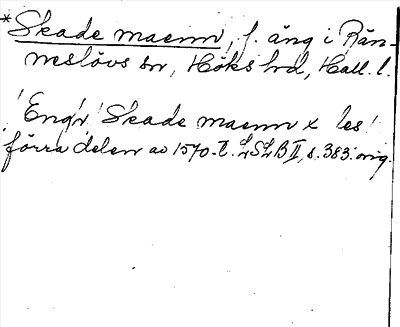 *Skade maenn, f. äng i Rän-
neslövs sn, Höks hd, Hall. l.
'Eng'r' Skade maenn x les'
förra delen av 1570-t. LSLB II, s. 383. orig.